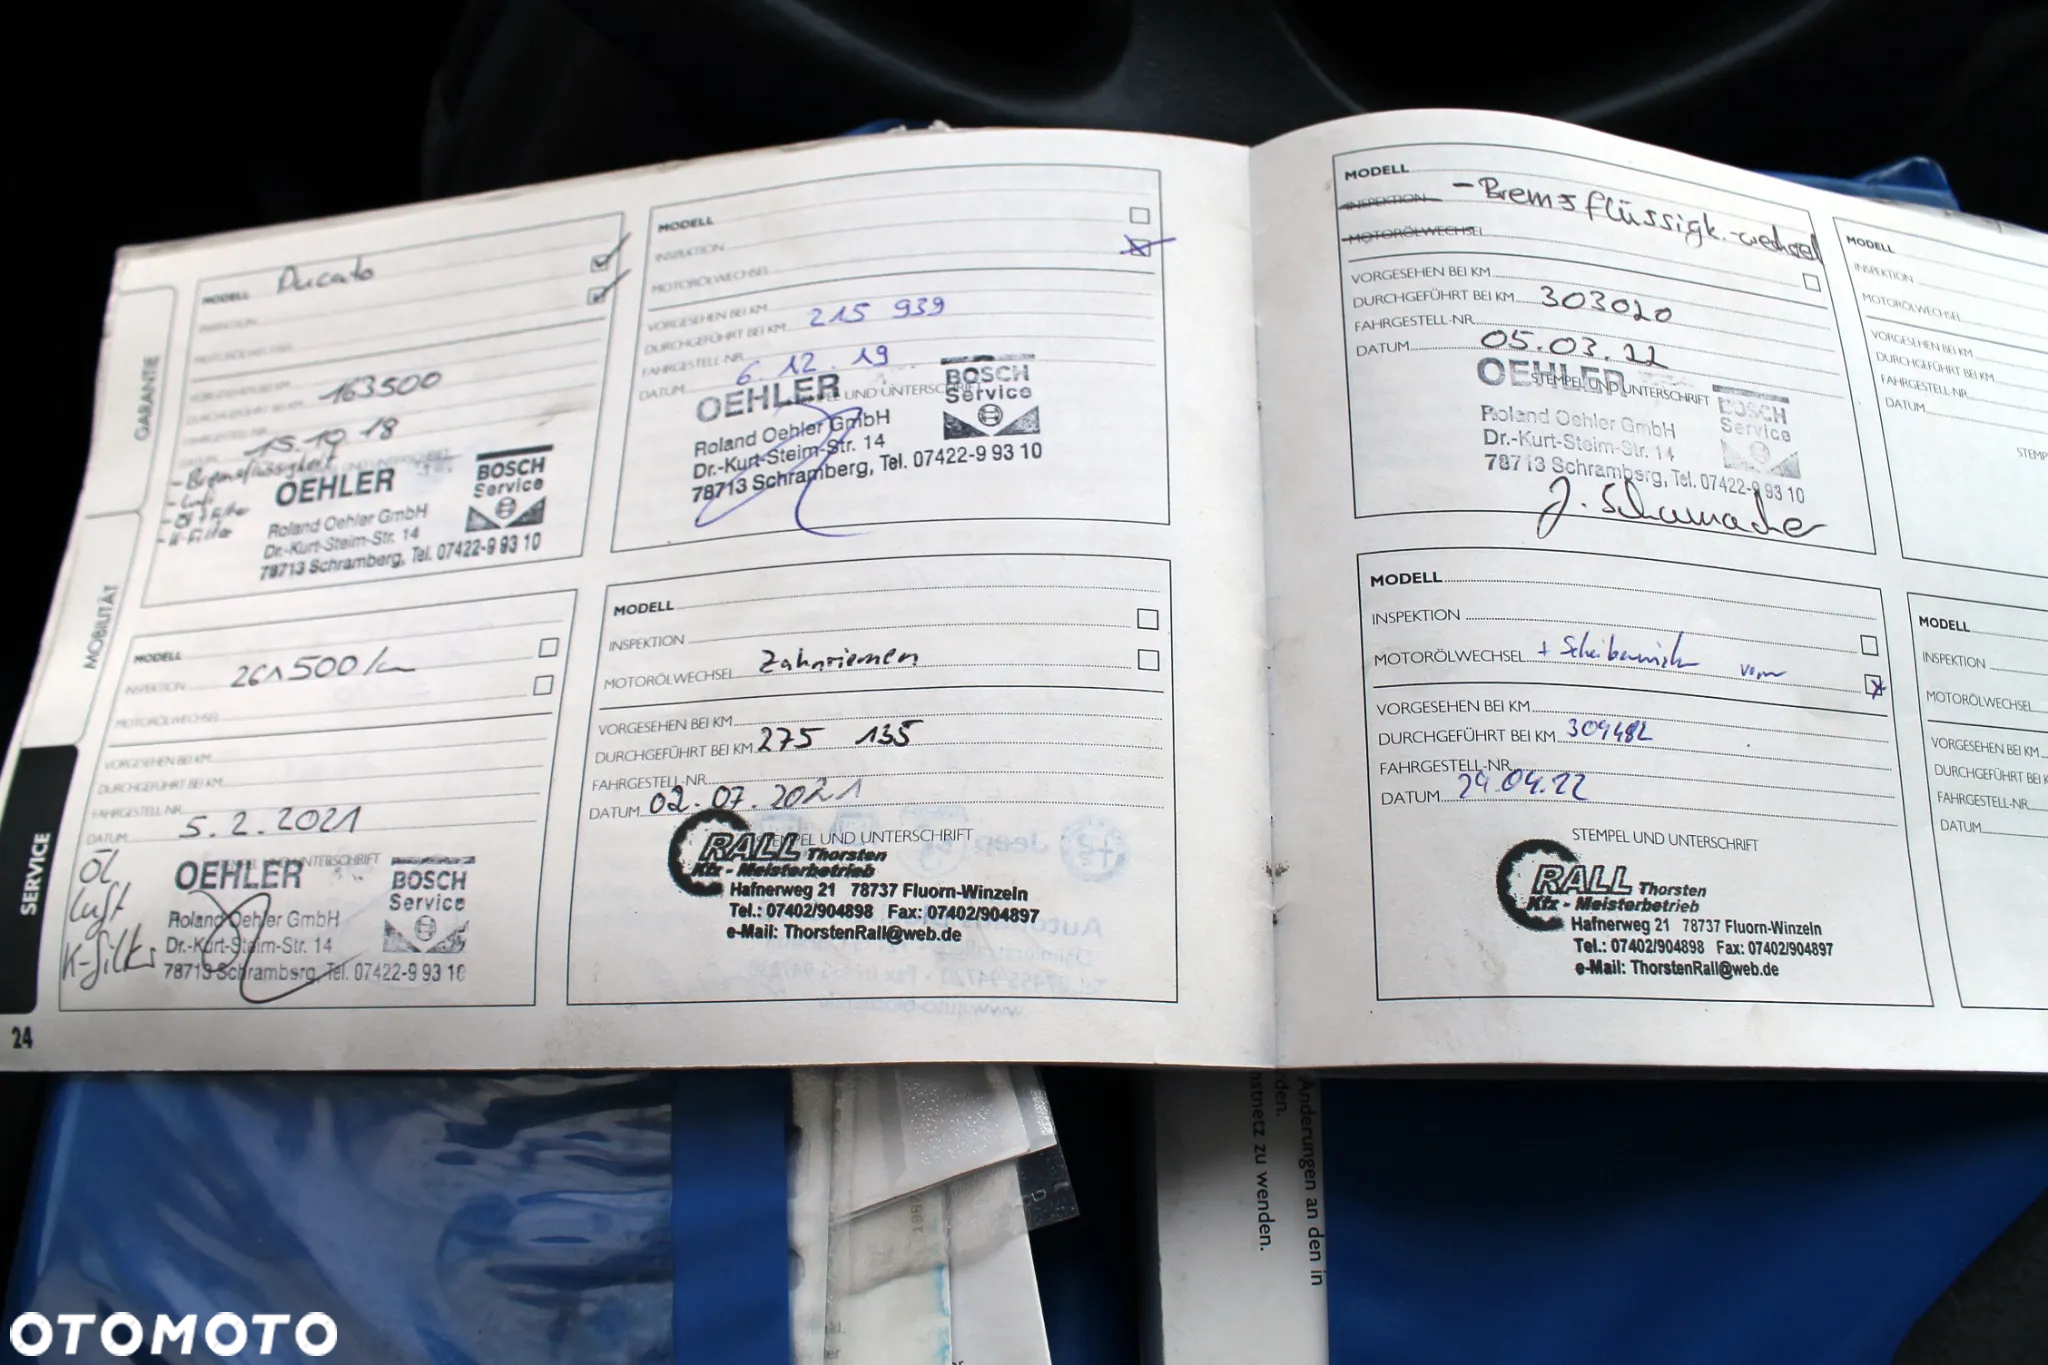 GARANTIE
MOBILITÄT
SERVICE
24
MODELL Ducato
INSPEKTION
MOTORÖLWECHSEL
VORGESEHEN BEI KM
DURCHGEFÜHRT BEI KM 163500
FAHRGESTELL-NR.
15.10.18
- Bremsflüssigkeit
- Luft
- Öl + Filter
- K-Filter
OEHLER
BOSCH
Service
Roland Oehler GmbH
Dr.-Kurt-Steim-Str. 14
78713 Schramberg, Tel. 07422-9 93 10
MODELL
INSPEKTION
MOTORÖLWECHSEL
VORGESEHEN BEI KM
DURCHGEFÜHRT BEI KM 215 939
FAHRGESTELL-NR.
DATUM 6.12.19
STEMPEL UND UNTERSCHRIFT
OEHLER
BOSCH
Service
Roland Oehler GmbH
Dr.-Kurt-Steim-Str. 14
78713 Schramberg, Tel. 07422-9 93 10
MODELL
INSPEKTION 261500 km
MOTORÖLWECHSEL
VORGESEHEN BEI KM
DURCHGEFÜHRT BEI KM
FAHRGESTELL-NR.
DATUM 5.2.2021
STEMPEL UND UNTERSCHRIFT
Öl
Luft
K-Filter
OEHLER
BOSCH
Service
Roland Oehler GmbH
Dr.-Kurt-Steim-Str. 14
78713 Schramberg, Tel. 07422-9 93 10
MODELL
INSPEKTION
MOTORÖLWECHSEL Zahnriemen
VORGESEHEN BEI KM
DURCHGEFÜHRT BEI KM 275 135
FAHRGESTELL-NR.
DATUM 02.07.2021
STEMPEL UND UNTERSCHRIFT
RALL Thorsten
Kfz - Meisterbetrieb
Hafnerweg 21 78737 Fluorn-Winzeln
Tel.: 07402/904898 Fax: 07402/904897
e-Mail: ThorstenRall@web.de
MODELL
INSPEKTION - Bremsflüssigk.-wechsel
MOTORÖLWECHSEL
VORGESEHEN BEI KM
DURCHGEFÜHRT BEI KM 303020
FAHRGESTELL-NR.
DATUM 05.03.22
STEMPEL UND UNTERSCHRIFT
OEHLER
BOSCH
Service
Roland Oehler GmbH
Dr.-Kurt-Steim-Str. 14
78713 Schramberg, Tel. 07422-9 93 10
J. Schumacher
MODELL
INSPEKTION
MOTORÖLWECHSEL
VORGESEHEN BEI KM
DURCHGEFÜHRT BEI KM
FAHRGESTELL-NR.
DATUM
STEMP
MODELL
INSPEKTION
MOTORÖLWECHSEL +
VORGESEHEN BEI KM
DURCHGEFÜHRT BEI KM 309482
FAHRGESTELL-NR.
DATUM 29.04.22
STEMPEL UND UNTERSCHRIFT
RALL Thorsten
Kfz - Meisterbetrieb
Hafnerweg 21 78737 Fluorn-Winzeln
Tel.: 07402/904898 Fax: 07402/904897
e-Mail: ThorstenRall@web.de
MODELL
INSPEKTION
MOTORÖLWECHSEL
VORGESEHEN BEI KM
DURCHGEFÜHRT BEI K
FAHRGESTELL-NR.
DATUM
Änderungen an den in
stnetz zu wenden.
OTOMOTO